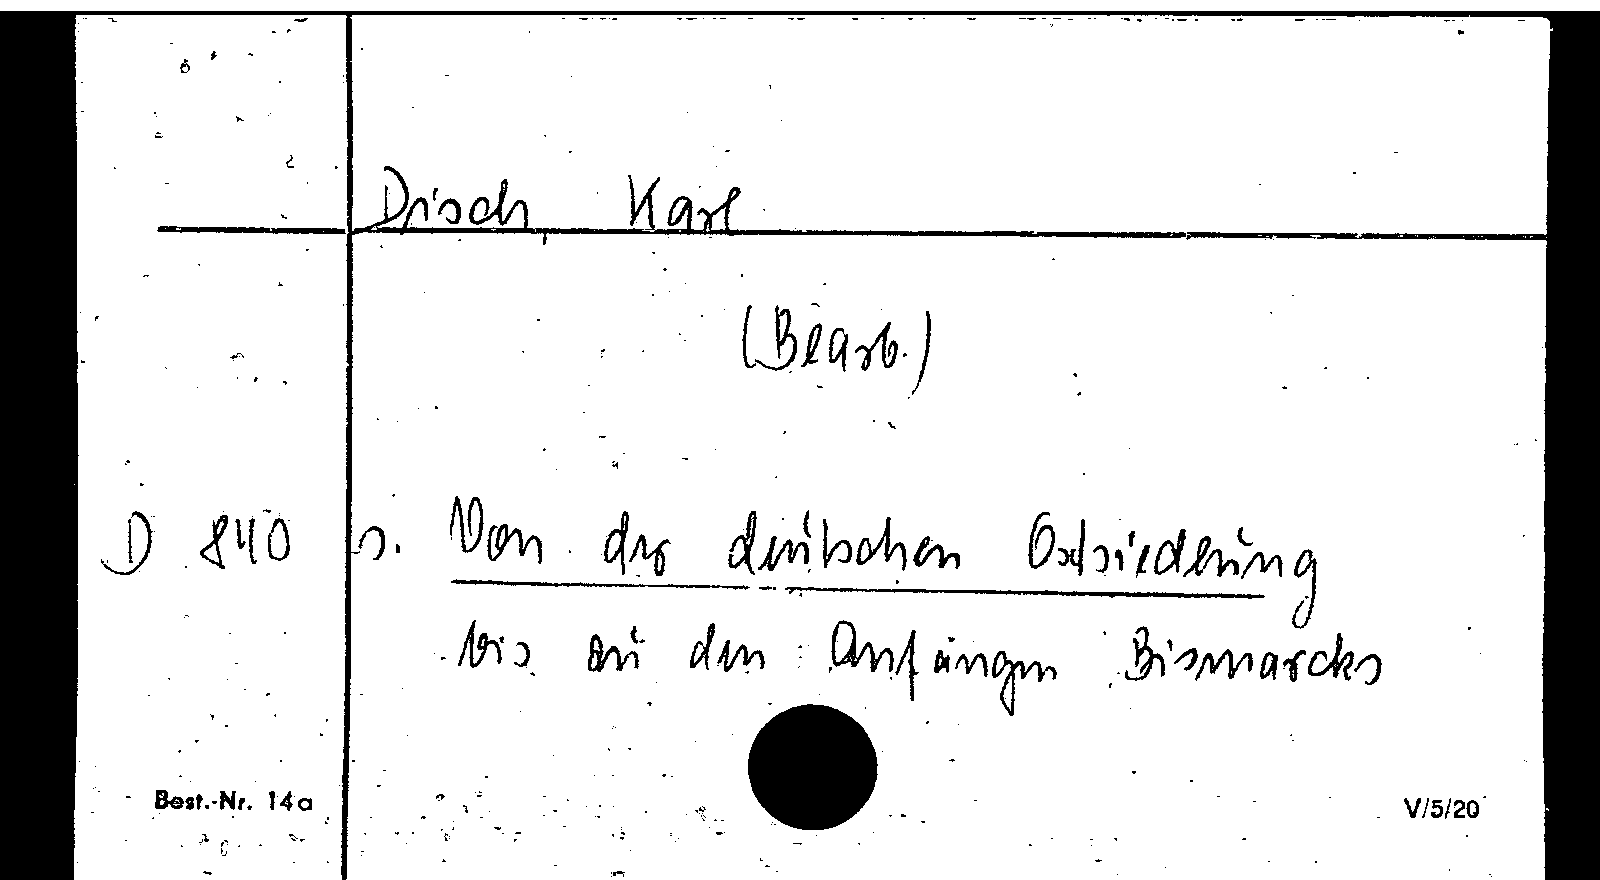 Disch, Karl
(Bearb.)
D 840 s. Von der deutschen Ostsiedlung
bis zu den Anfängen Bismarcks
Best.-Nr. 14a V/5/20